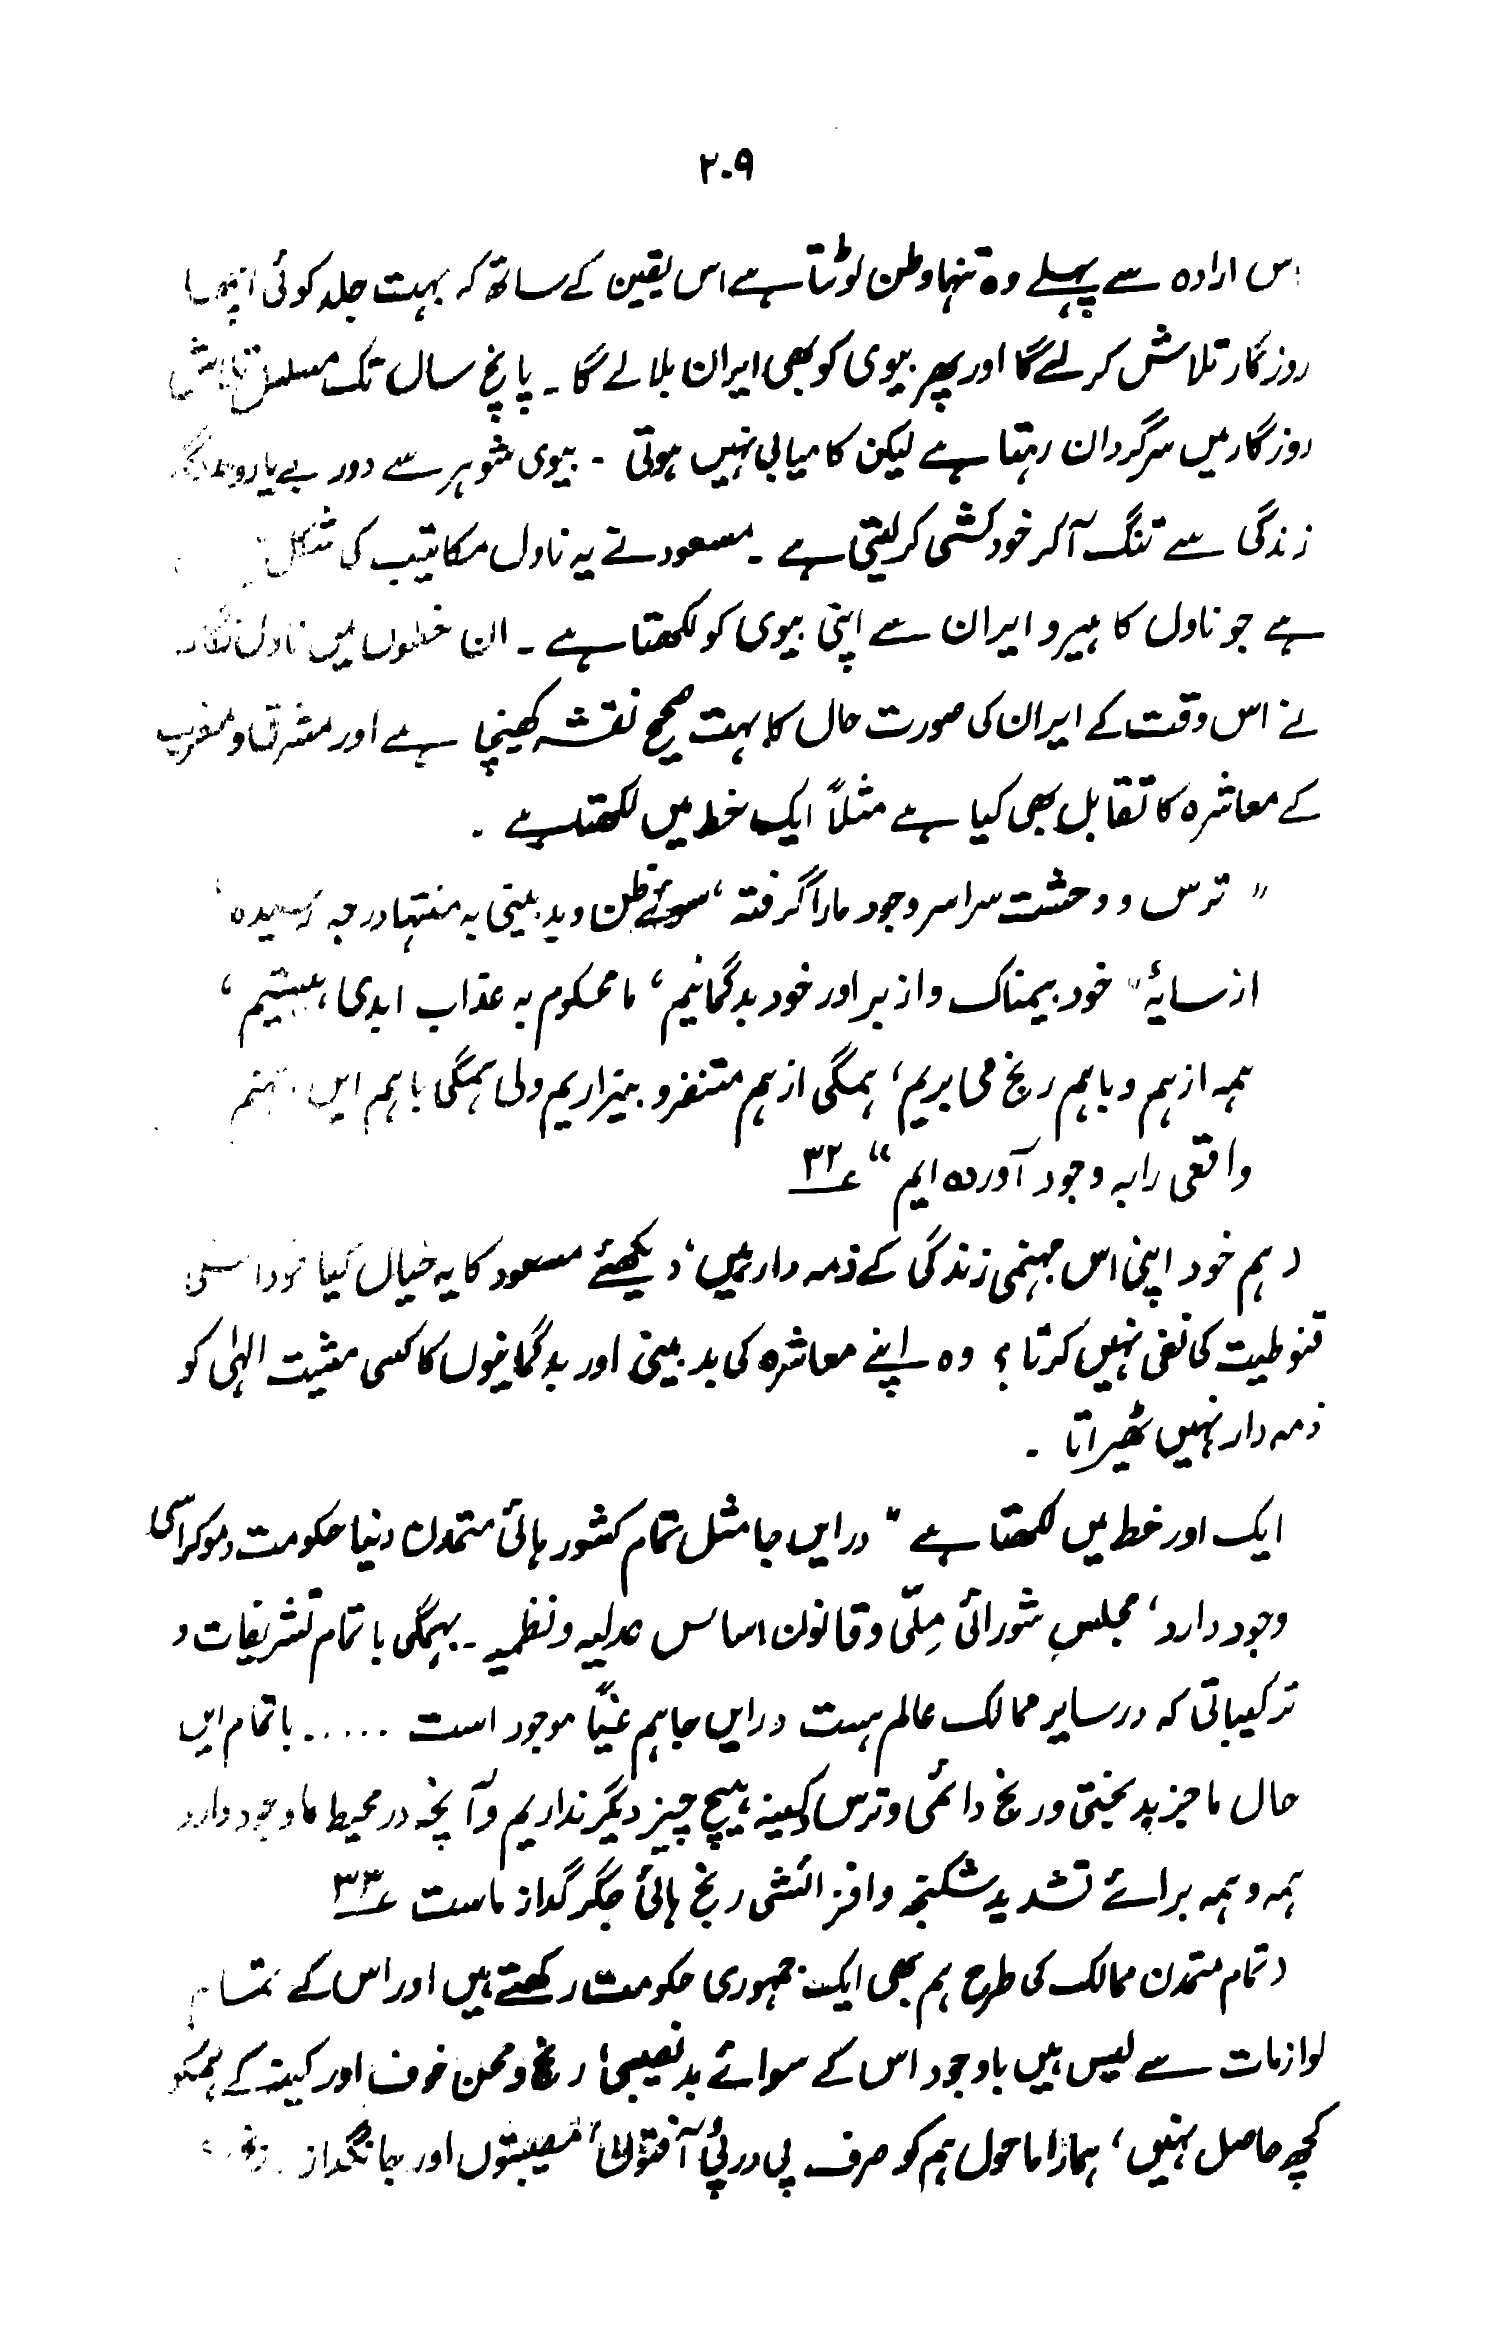 ۲۰۹
اس ارادہ سے پہلے وہ تنہا وطن لوٹتا ہے اس یقین کے ساتھ کہ بہت جلد کوئی اچھا
روزگار تلاش کرلے گا اور پھر بیوی کو بھی ایران بلا لے گا ۔ پانچ سال تک مسلسل تلاش
روزگار میں سرگردان رہتا ہے لیکن کامیابی نہیں ہوتی ۔ بیوی شوہر سے دور بے یارو مددگار
زندگی سے تنگ آکر خودکشی کرلیتی ہے ۔ مسعود نے یہ ناول مکاتیب کی شکل
ہے جو ناول کا ہیرو ایران سے اپنی بیوی کو لکھتا ہے ۔ ان خطوں میں ناول نگار
نے اس وقت کے ایران کی صورت حال کا بہت صحیح نقشہ کھینچا ہے اور مشرق و مغرب
کے معاشرہ کا تقابل بھی کیا ہے مثلاً ایک خط میں لکھتا ہے ۔
" ترس و وحشت سراسر وجود مارا گرفتہ ، سوئے ظن و بدبینی بہ منتہا درجہ رسیدہ ،
از سایۂ خود بیمناک و از برادر خود بدگمانیم ، ما محکوم بہ عذاب ابدی ہستیم ،
ہمہ از ہم و باہم رنج می بریم ، ہمگی از ہم متنفر و بیزاریم ولی ہمگی باہم ایں جہنم
واقعی را بہ وجود آوردہ ایم " ؏۳۲
( ہم خود اپنی اس جہنمی زندگی کے ذمہ دار ہیں ، دیکھئے مسعود کا یہ خیال کیا خود اسکی
قنوطیت کی نفی نہیں کرتا ؟ وہ اپنے معاشرہ کی بدبینی اور بدگمانیوں کا کسی مشیت الٰہی کو
ذمہ دار نہیں ٹھیراتا ۔
ایک اور خط میں لکھتا ہے " در ایں جا مثل تمام کشور ہائی متمدن دنیا حکومت دموکراسی
وجود دارد ، مجلسِ شورائی مِلّی و قانون اساس عدلیہ و نظمیہ ۔ بہمگی با تمام تشریفات و
ترکیباتی کہ در سایر ممالک عالم ہست در ایں جا ہم عیناً موجود است ..... با تمام ایں
حال ما جز بدبختی و رنج دائمی و ترس و کینہ ہیچ چیز دیگر نداریم و آنچہ در محیط ما وجود دارد
ہمہ و ہمہ برائے تشدید شکنجہ و افزائشی رنج ہائی جگر گداز ماست ؏۳۳
( تمام متمدن ممالک کی طرح ہم بھی ایک جمہوری حکومت رکھتے ہیں اور اس کے تمام
لوازمات سے لیس ہیں باوجود اس کے سوائے بدنصیبی ، رنج و محن خوف اور کینہ کے ہمکو
کچھ حاصل نہیں ، ہمارا ماحول ہم کو صرف پی در پئی آفتوں ، مصیبتوں اور جانگداز